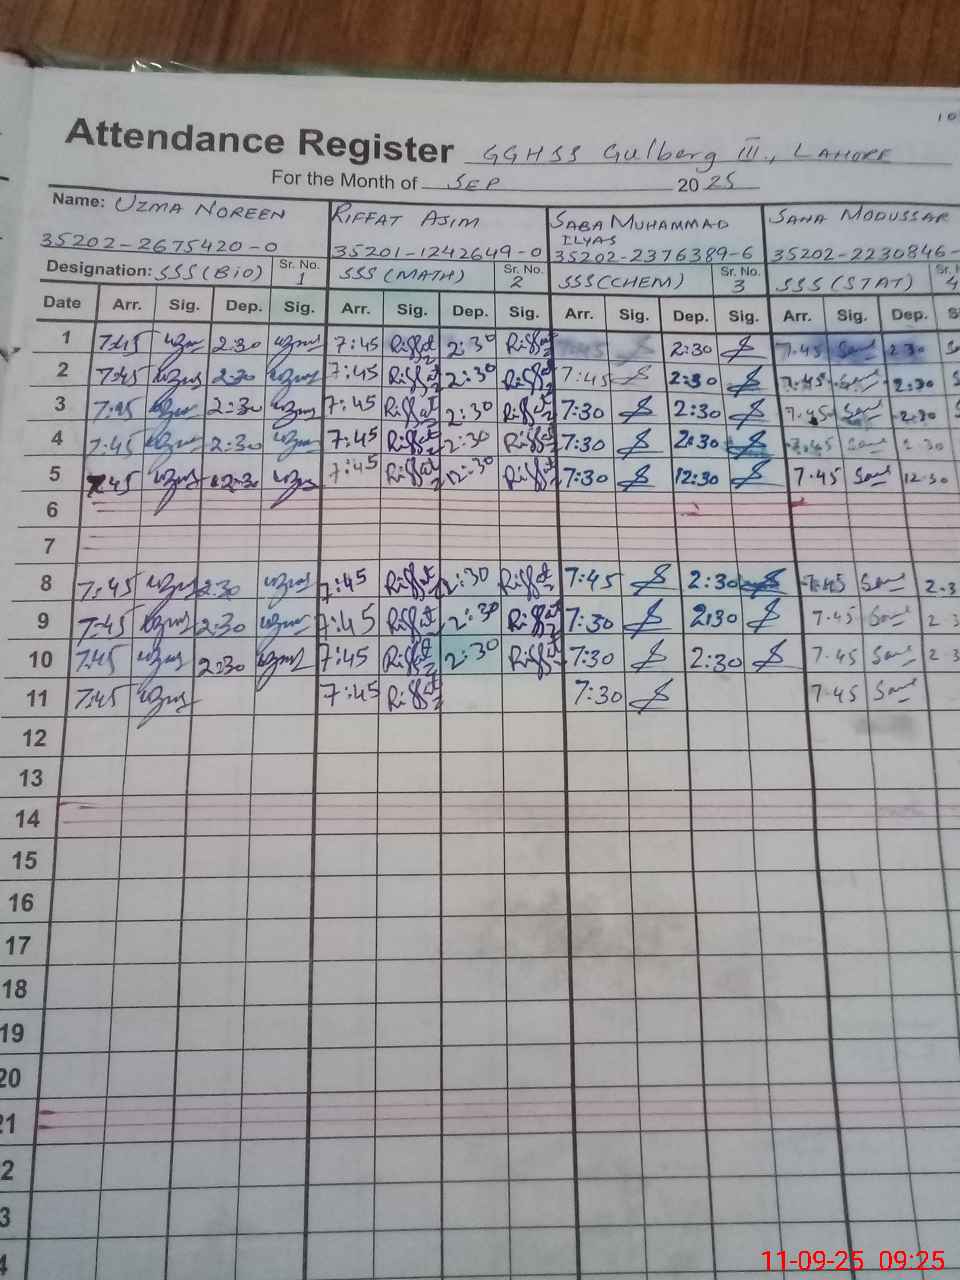 10
Attendance Register GGHSS Gulberg III., LAHORE
For the Month of SEP 2025
Name: UZMA NOREEN RIFFAT ASIM SABA MUHAMMAD ILYAS SANA MODUSSAR
35202-2675420-0 35201-1242649-0 35202-2376389-6 35202-2230846-
Designation: SSS(BIO) Sr. No. 1 SSS(MATH) Sr. No. 2 SSS(CHEM) Sr. No. 3 SSS(STAT) 4
Date Arr. Sig. Dep. Sig. Arr. Sig. Dep. Sig. Arr. Sig. Dep. Sig. Arr. Sig. Dep. S
1 7:45 uzm 2:30 uzma 7:45 Riffat 2:30 Riffat 2:30 7.45 Sana 2.30
2 7:45 uzma 2:30 uzma 7:45 Riffat 2:30 Riffat 7:45 2:30 7.45 Sana 2:30
3 7:45 uzma 2:30 uzma 7:45 Riffat 2:30 Riffat 7:30 2:30 7.45 Sana 2.30
4 7:45 uzma 2:30 uzma 7:45 Riffat 2:30 Riffat 7:30 2:30 7.45 Sana 2.30
5 7:45 uzma 12:30 uzma 7:45 Riffat 12:30 Riffat 7:30 12:30 7.45 Sana 12.30
6
7
8 7:45 uzma 2:30 uzma 7:45 Riffat 2:30 Riffat 7:45 2:30 7.45 Sana 2.3
9 7:45 uzma 2:30 uzma 7:45 Riffat 2:30 Riffat 7:30 2:30 7.45 Sana 2.3
10 7:45 uzma 2:30 uzma 7:45 Riffat 2:30 Riffat 7:30 2:30 7.45 Sana 2.3
11 7:45 uzma 7:45 Riffat 7:30 7.45 Sana
12
13
14
15
16
17
18
19
20
21
2
3
4
11-09-25 09:25